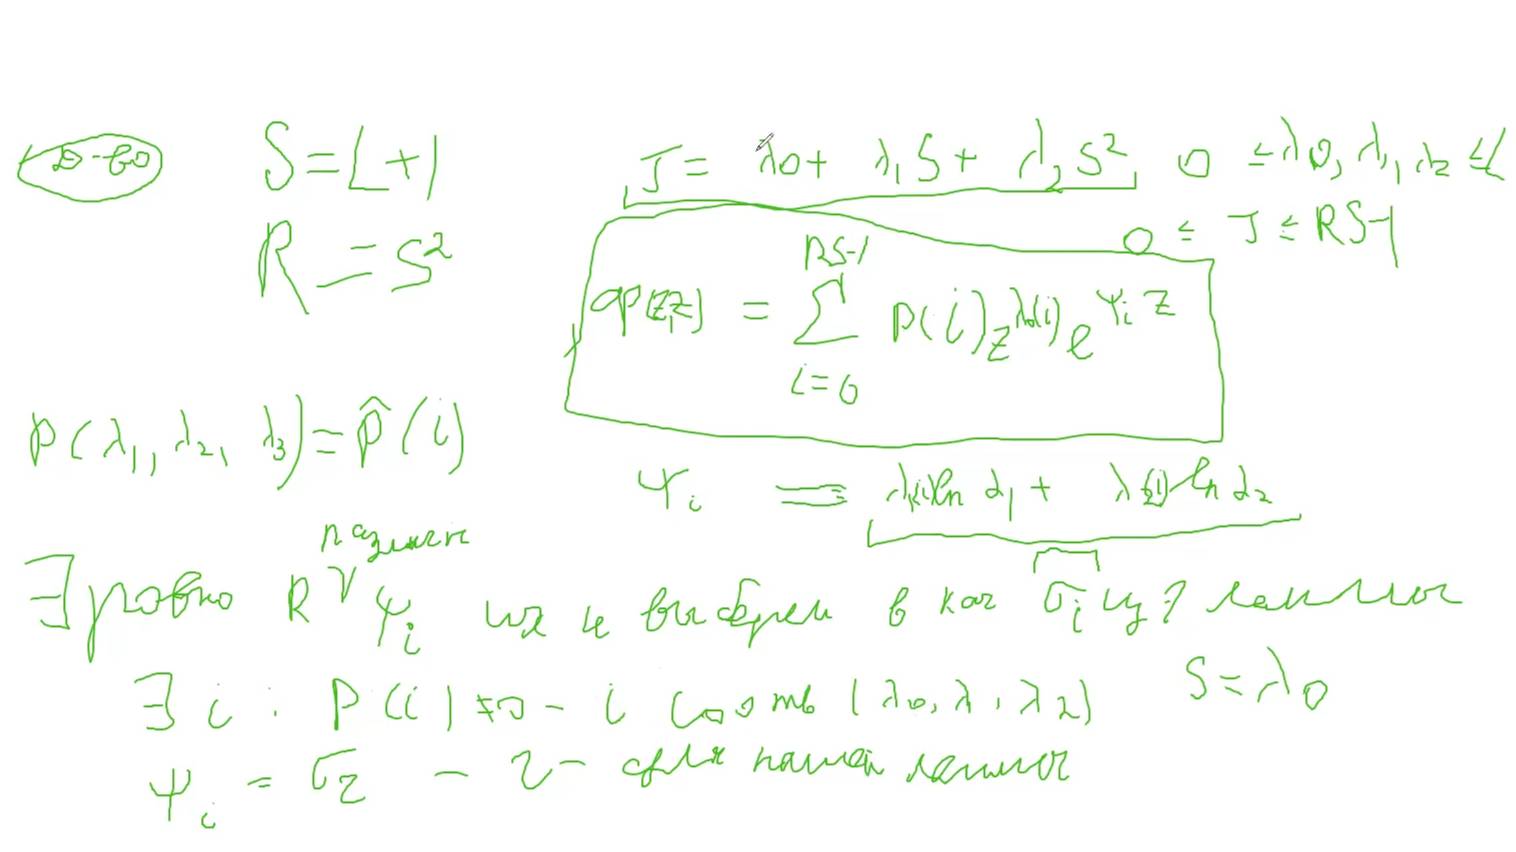 Д-во
S = L+1
J = λ0 + λ1 S + λ2 S² 0 ≤ λ0, λ1, λ2 ≤ L
R = S²
0 ≤ J ≤ RS-1
φ(z,z) = Σ_{i=0}^{RS-1} p(i) z^{λ0(i)} e^{ψi z}
p(λ1, λ2, λ3) = p̂(i)
ψi = λ1(i) ln α1 + λ2(i) ln α2
∃ ровно R различн ψi их и выберем в кач σi из леммы
∃ i : p(i) ≠ 0 - i соотв (λ0, λ1, λ2) S = λ0
ψi = σr - r - для нашей леммы